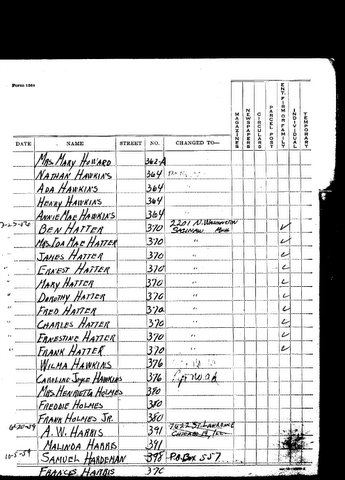 Form 1564
MAGAZINES
NEWSPAPERS
CIRCULARS
PARCEL POST
ENT. FIRM OR FAMILY
INDIVIDUAL
TEMPORARY
DATE NAME STREET NO. CHANGED TO—
MRS. MARY HOWARD 362-A
NATHAN HAWKINS 364
ADA HAWKINS 364
HENRY HAWKINS 364
ANNIE MAE HAWKINS 364
BEN HATTER 370 2201 N. WASHINGTON SAGINAW MICH ✓
MRS. IDA MAE HATTER 370 " ✓
JAMES HATTER 370 " ✓
ERNEST HATTER 370 " ✓
MARY HATTER 370 " ✓
DOROTHY HATTER 370 " ✓
FRED HATTER 370 " ✓
CHARLES HATTER 370 " ✓
ERNESTINE HATTER 370 " ✓
FRANK HATTER 370 " ✓
WILMA HAWKINS 376
CAROLINE JOYCE HAWKINS 376
MRS. HENRIETTA HOLMES 380
FREDDIE HOLMES 380
FRANK HOLMES JR. 380
6-20-59 A. W. HARRIS 391 7432 ST. LAWRENCE CHICAGO 19, ILL.
MALINDA HARRIS 391
10-5-59 SAMUEL HARDEMAN 398 P.O. BOX 557
FRANCES HARRIS 370